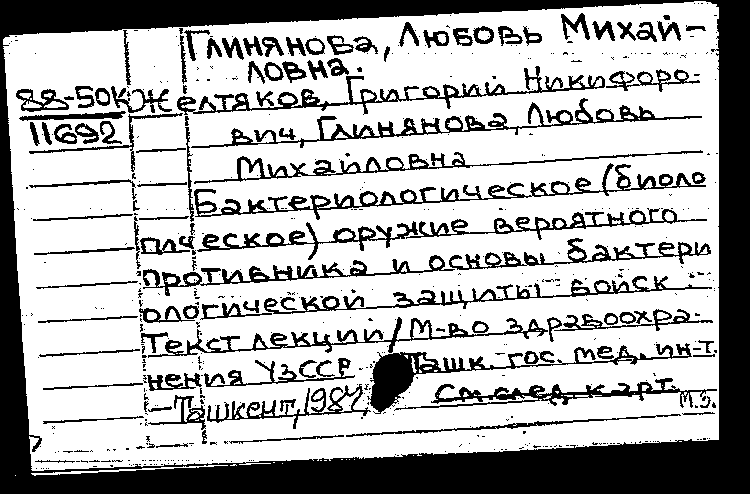 Глинянова, Любовь Михай-
ловна.
88-50к Желтяков, Григорий Никифоро-
11692 вич, Глинянова, Любовь
Михайловна
Бактериологическое (биоло
гическое) оружие вероятного
противника и основы бактери
ологической защиты войск :
Текст лекций / М-во здравоохра-
нения УзССР Ташк. гос. мед. ин-т.
– Ташкент, 1987, См. след. карт.
М.З.